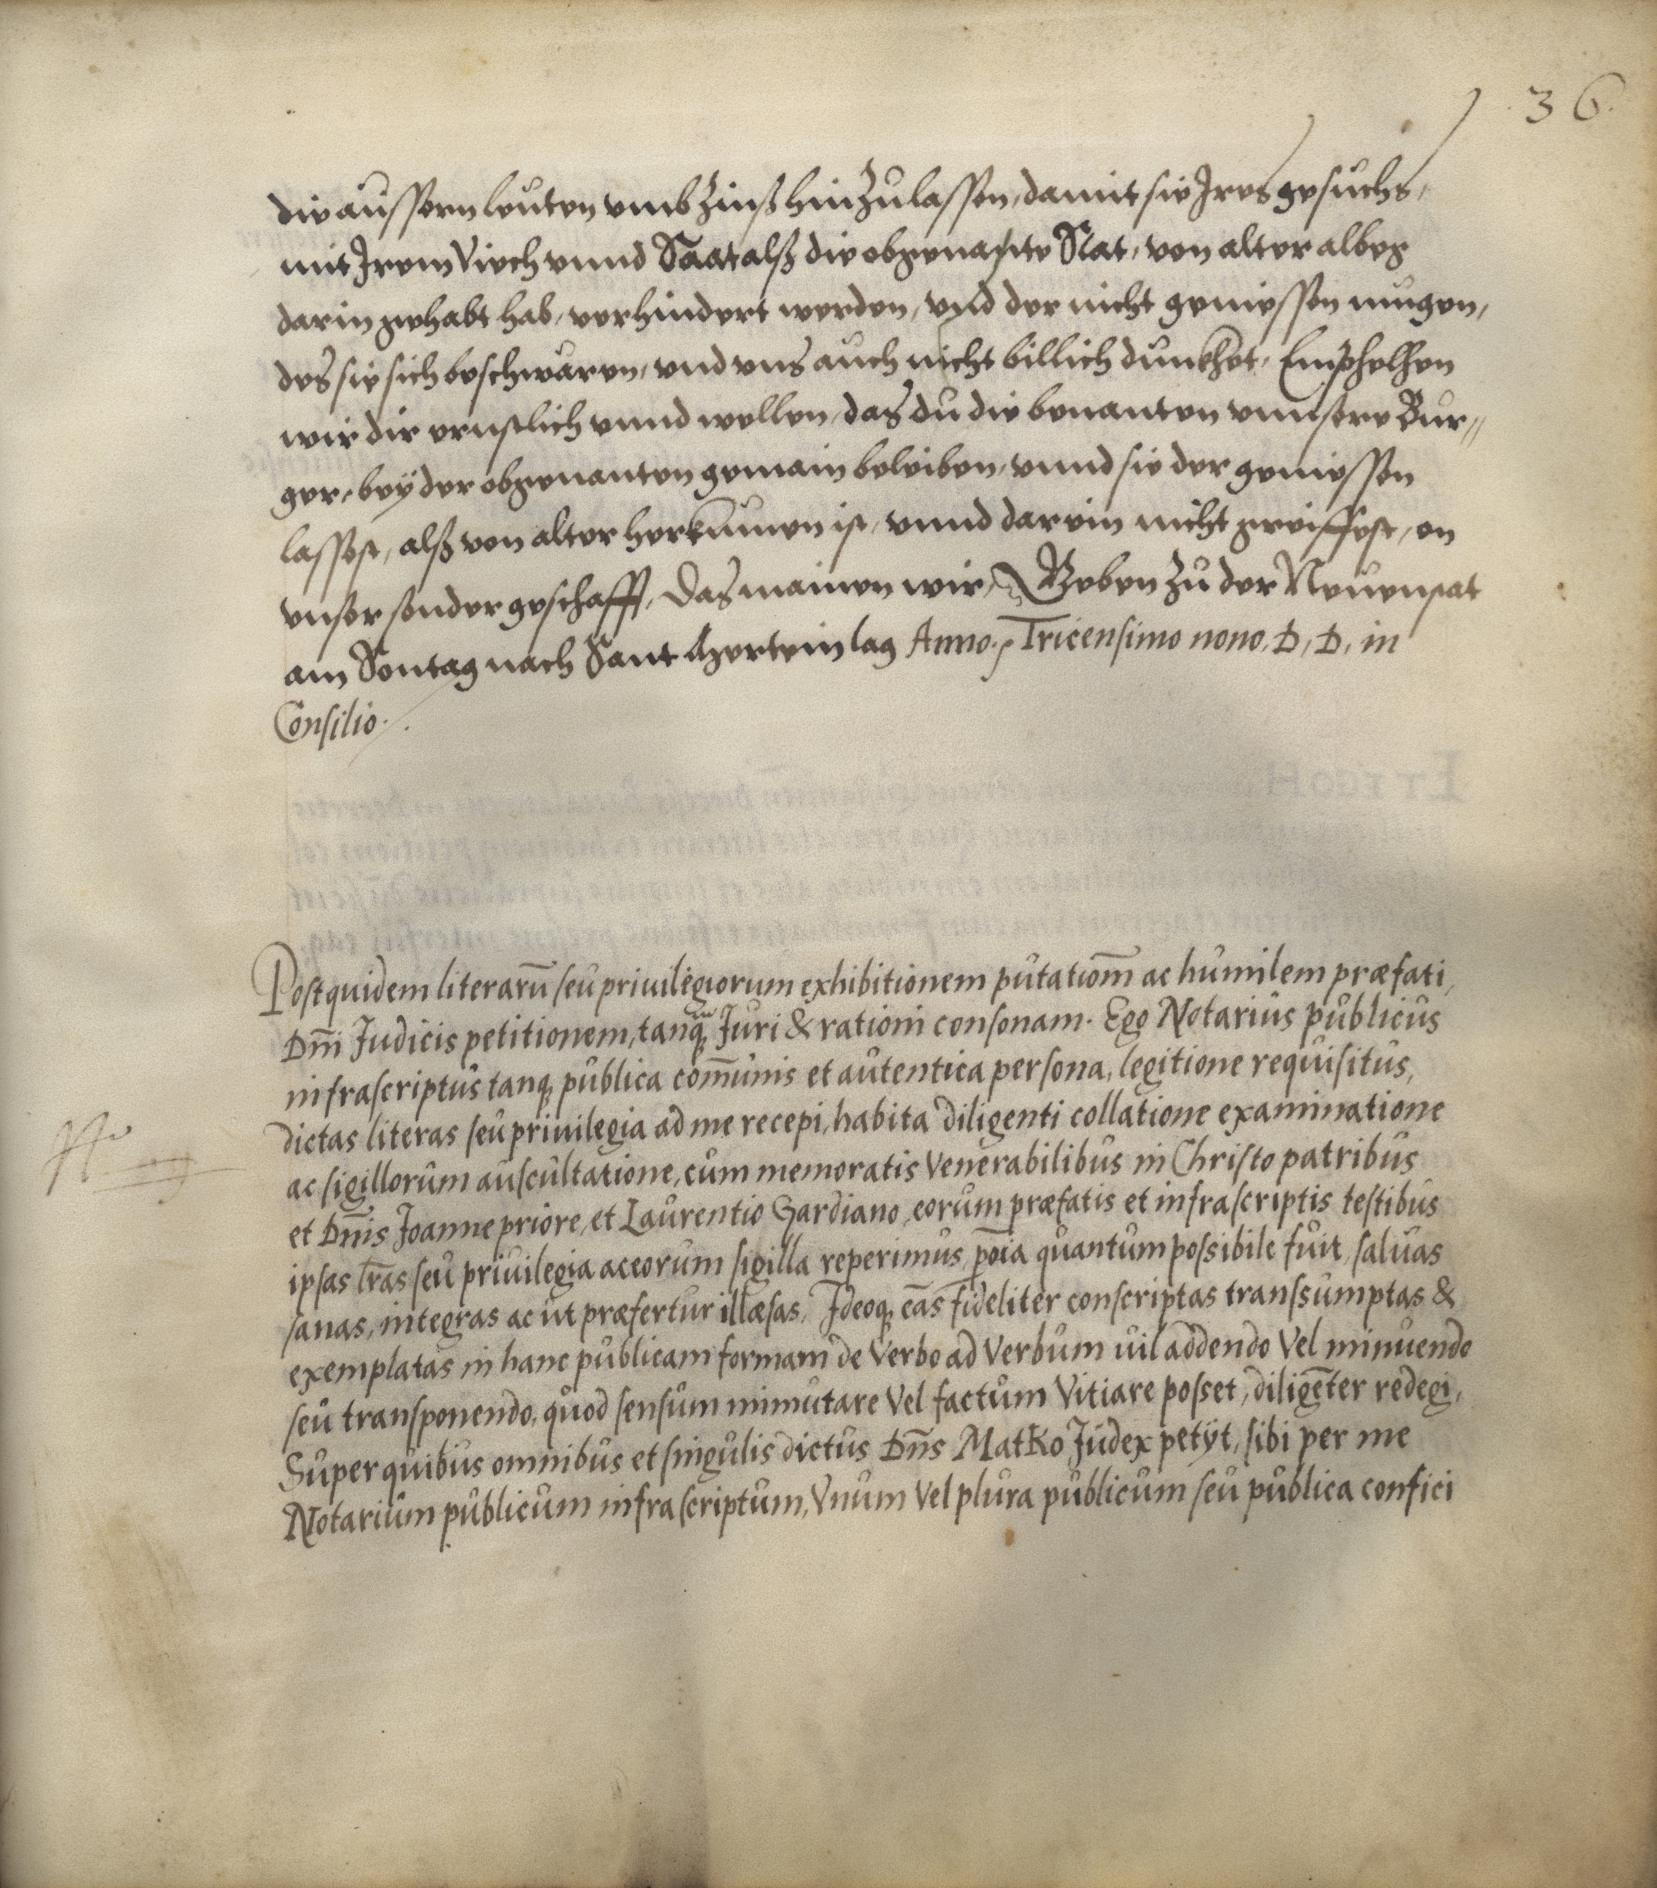 36.
die aussern leuten vmb Zinß hin Zu lassen, damit sie Ires gesuchs,
mit Irem Viech vnnd Saat alß die obgenante Stat, von alter albeg
darin gehabt hab, verhindert werden, vnd der nicht geniessen mugen,
des sie sich beschwaren, vnd vns auch nicht billich dunkhet, Emphelhen
wir dir ernstlich vnnd wellen, das du die benanten vnnsere Bur⸗
ger, beÿ der obgenanten gemain beleiben, vnnd sie der geniessen
lassest, alß von alter herkumen ist, vnnd darein nicht greiffest, on
vnser sonder geschafft, Das mainen wir, Geben Zu der Neuenstat
am Sontag nach Sant tag Anno. Tricensimo nono. D, D, in
Consilio.
Postquidem literarū seu priuilegiorum exhibitionem putatiom̄ ac humilem præfati,
Dn̄i Judicis petitionem, tanq̄ Juri & rationi consonam. Ego Notarius publicus
infrascriptus tanq, publica com̄unis et autentica persona, legitione requisitus,
dictas literas seu priuilegia ad me recepi, habita diligenti collatione examinatione
ac sigillorum auscultatione, cum memoratis Venerabilibus in Christo patribus
et Dn̄is Joanne priore, et Laurentio Gardiano, eorum præfatis et infrascriptis testibus
ipsas lr̄as seu priuilegia ac eorum sigilla reperimus, p̄oia quantum possibile fuit, saluas
sanas, integras ac ut præfertur illæsas, Ideoq, eas fideliter conscriptas transsumptas &
exemplatas in hanc publicam formam de Verbo ad Verbum nil addendo Vel minuendo
seu transponendo, quod sensum mimutare Vel factum Vitiare posset, diligēter redegi,
Super quibus omnibus et singulis dictus Dn̄s Matko Judex petÿt, sibi per me
Notarium publicum infra scriptum, Vnum Vel plura publicum seu publica confici